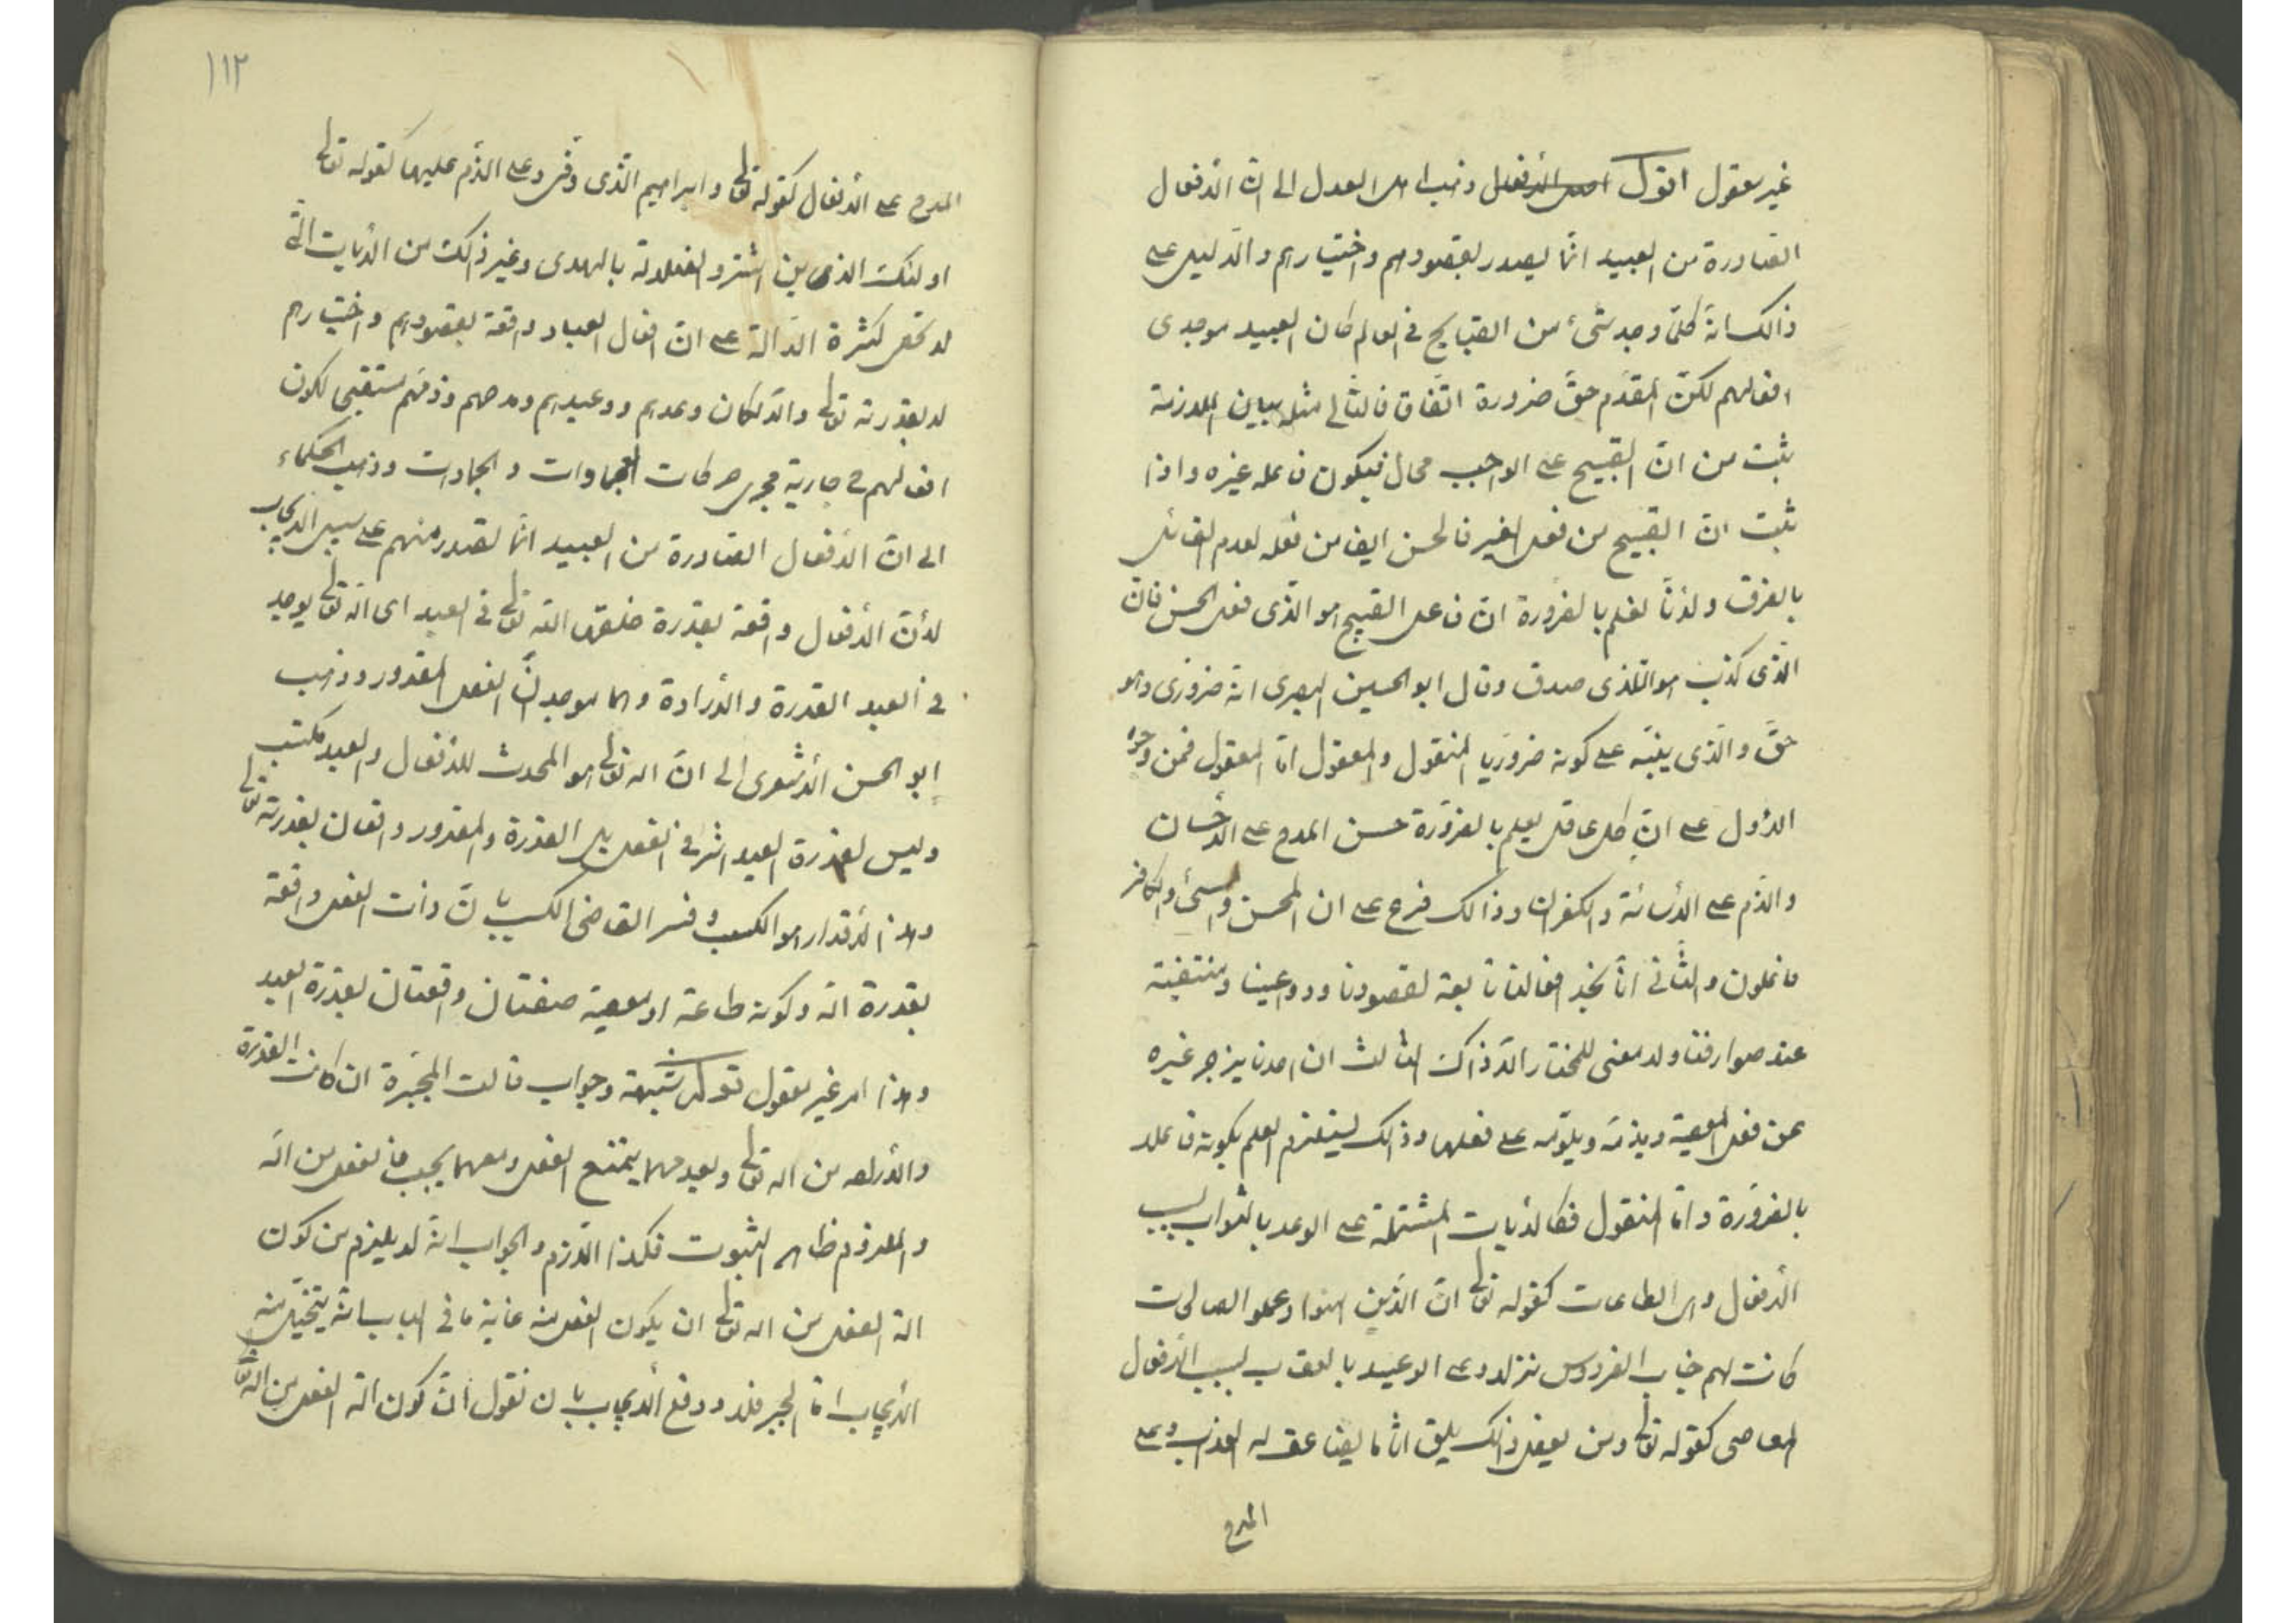 غير معقول اقول اصل الأفعال ذهب اهل العدل الى ان الأفعال
الصادرة من العبيد انما يصدر بقصودهم واختيارهم والدليل على
ذالك انه كلما وجد شئ من القبايح فى العالم كان العبيد موجدى
افعالهم لكن المقدم حق ضرورة اتفاق فالتالى مثله بيان الملازمة
يثبت من ان القبيح على الواجب محال فيكون فاعله غيره واذا
ثبت ان القبيح من فعل الغير فالحسن ايضا من فعله لعدم القائل
بالفرق ولأنا نعلم بالضرورة ان فاعل القبيح هو الذى فعل الحسن فان
الذى كذب هو الذى صدق وقال ابو الحسين البصرى انه ضرورى وهو
حق والذى ينبه على كونه ضروريا المنقول والمعقول اما المعقول فمن وجوه
الأول على ان كل عاقل يعلم بالضرورة حسن المدح على الأحسان
والذم على الأسائة والكفران وذالك فرع على ان المحسن والمسئ والكافر
فاعلون والثانى انا نجد افعالنا تابعة لقصودنا ودواعينا ومنتفية
عند صوارفنا ولا معنى للمختار الا ذاك الثالث ان احدنا يزجر غيره
عن فعل المعصية ويذمه ويلومه على فعلها وذالك يستلزم العلم بكونه فاعلا
بالضرورة واما المنقول فكالأيات المشتملة على الوعد بالثواب بسبب
الأفعال واى الطاعات كقوله تعالى ان الذين امنوا وعملو الصالحات
كانت لهم جنات الفردوس نزلا وعلى الوعيد بالعقاب بسبب الأفعال
المعاصى كقوله تعالى ومن يفعل ذالك يلق اثاما يضاعف له العذاب وعلى
المدح
١١٢
المدح على الأفعال كقوله تعالى وابراهيم الذى وفى وعلى الذم عليها كقوله تعالى
اولئك الذين اشترو الضلالة بالهدى وغير ذالك من الأيات التى
لا تحصى لكثرة الدالة على ان افعال العباد واقعة بقصودهم واختيارهم
لا بقدرته تعالى والا لكان وعدهم ووعيدهم ومدحهم وذمهم مستقبحا لكون
افعالهم ح جارية مجرى حركات الجمادات وذهب الحكماء
الى ان الأفعال الصادرة من العبيد انما تصدر منهم على سبيل الأيجاب
لأن الأفعال واقعة بقدرة خلقها الله تعالى فى العبد اى انه تعالى يوجد
فى العبد القدرة والأرادة وهما موجدان الفعل المقدور وذهب
ابو الحسن الأشعرى الى ان الله تعالى هو المحدث للأفعال والعبد مكتسب
وليس لقدرة العبد اثر فى الفعل بل القدرة والمقدور واقعان بقدرته تعالى
وهذا الأقتدار هو الكسب وفسر القاضى الكسب بان ذات الفعل واقعة
بقدرة الله وكونه طاعة او معصية صفتان واقعتان بقدرة العبد
وهذا امر غير معقول قوله شبهة وجواب قالت المجبرة ان كانت القدرة
والأرادة من الله تعالى وبعدمهما يمتنع الفعل ومعهما يجب فالفعل من الله
والملزوم ظاهر الثبوت فكذا اللازم والجواب انه لا يلزم من كون
الة الفعل من الله تعالى ان يكون الفعل منه غاية ما فى الباب انه يتخيل منه
الأيجاب اما الجبر فلا ودفع الأيجاب بان نقول ان كون الة الفعل من الله تعالى